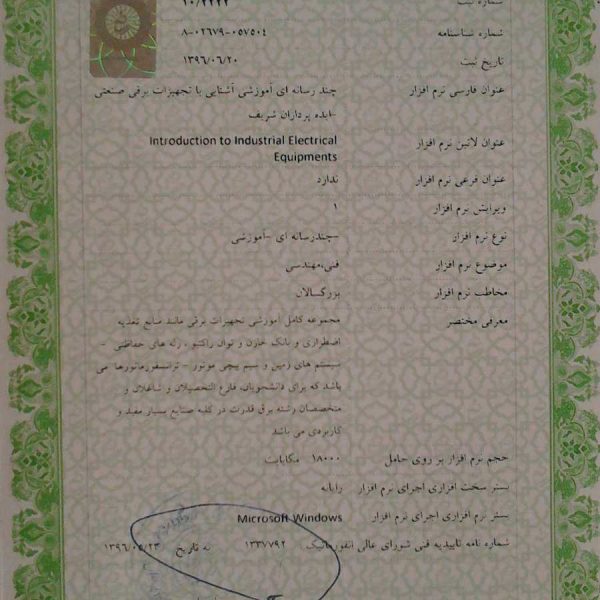 شماره ثبت ۱۰/۲۲۲۲
شماره شناسنامه ۸-۰۲۶۷۹-۰۵۷۵۰۴
تاریخ ثبت ۱۳۹۶/۰۶/۲۰
عنوان فارسی نرم افزار چند رسانه ای آموزشی آشنایی با تجهیزات برقی صنعتی
-ایده پردازان شریف
عنوان لاتین نرم افزار Introduction to Industrial Electrical
Equipments
عنوان فرعی نرم افزار ندارد
ویرایش نرم افزار ۱
نوع نرم افزار -چندرسانه ای -آموزشی
موضوع نرم افزار فنی،مهندسی
مخاطب نرم افزار بزرگسالان
معرفی مختصر مجموعه کامل آموزشی تجهیزات برقی مانند منابع تغذیه
اضطراری و بانک خازن و توان راکتیو ، رله های حفاظتی -
سیستم های زمین و سیم پیچی موتور - ترانسفورماتورها می
باشد که برای دانشجویان، فارغ التحصیلان و شاغلان و
متخصصان رشته برق قدرت در کلیه صنایع بسیار مفید و
کاربردی می باشد
حجم نرم افزار بر روی حامل ۱۸۰۰۰ مگابایت
بستر سخت افزاری اجرای نرم افزار رایانه
بستر نرم افزاری اجرای نرم افزار Microsoft Windows
شماره نامه تاییدیه فنی شورای عالی انفورماتیک ۱۳۳۷۷۹۲ به تاریخ